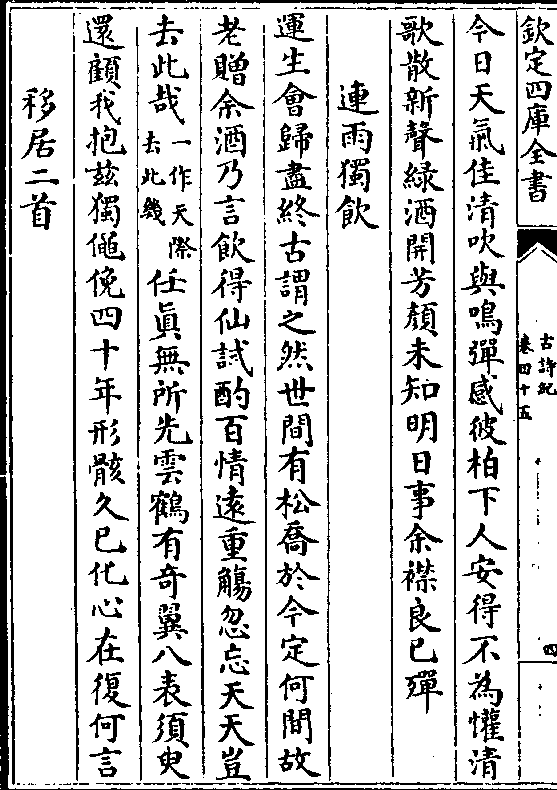 欽定四庫全書
古詩紀
卷四十五
四
今日天氣佳清吹與鳴彈感彼柏下人安得不為懽清
歌散新聲綠酒開芳顏未知明日事余襟良已殫
連雨獨飲
運生會歸盡終古謂之然世間有松喬於今定何間故
老贈余酒乃言飲得仙試酌百情遠重觴忽忘天天豈
去此哉一作天際去此幾任真無所先雲鶴有奇翼八表須臾
還顧我抱茲獨僶俛四十年形骸久已化心在復何言
移居二首